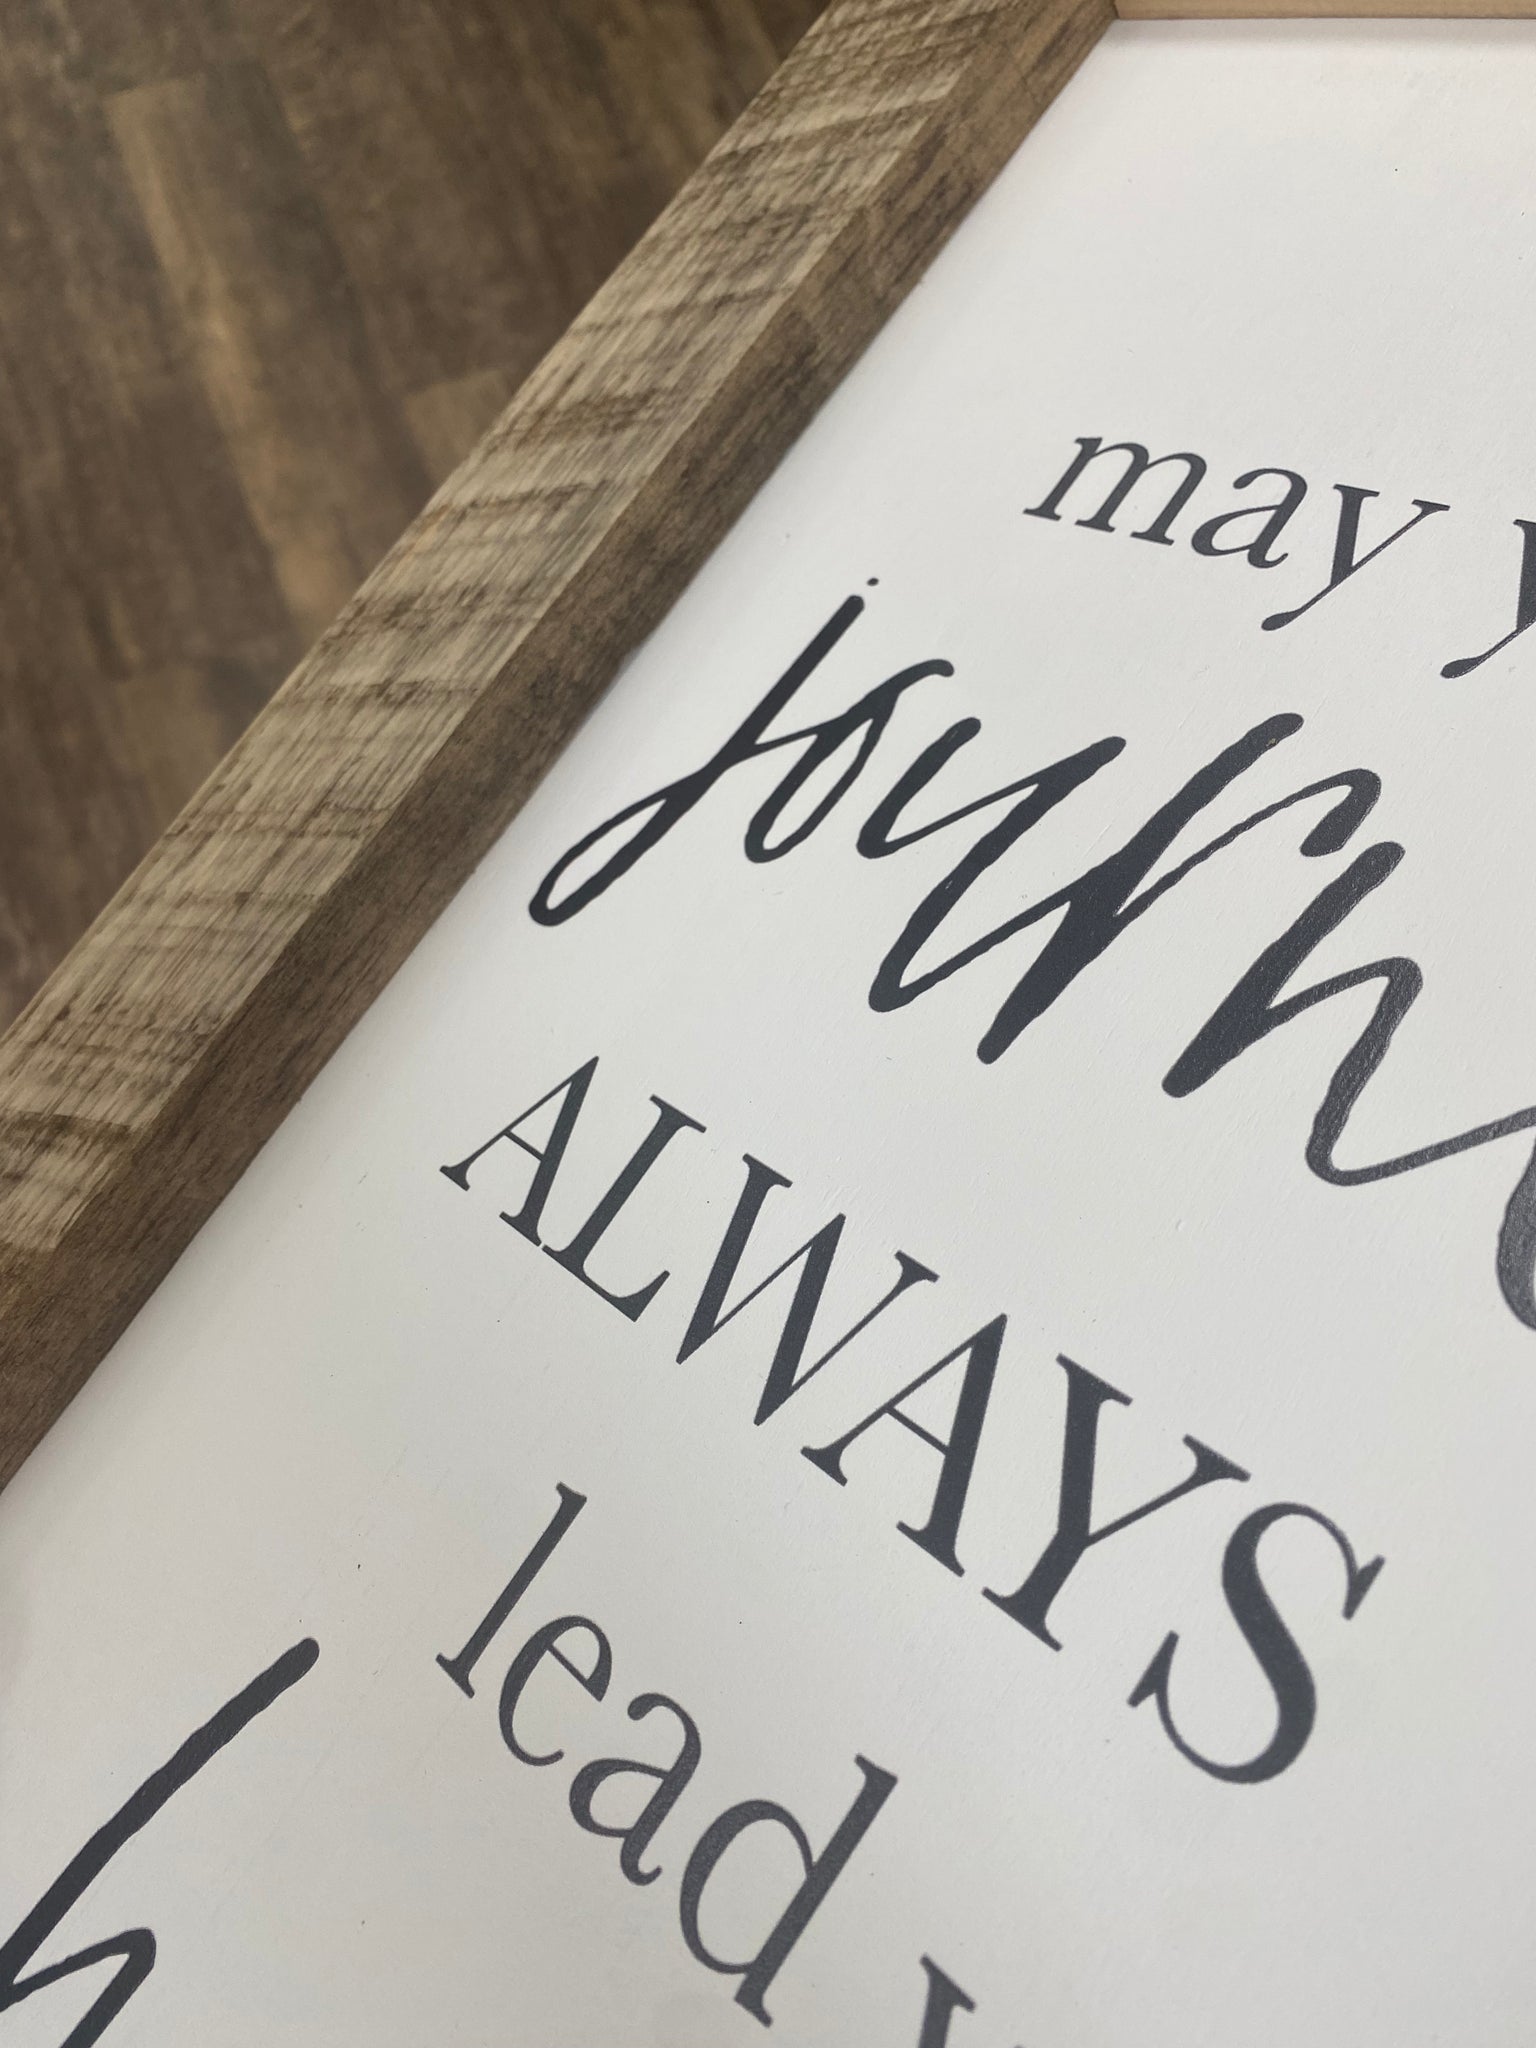 may y
journe
ALWAYS
lead y
h